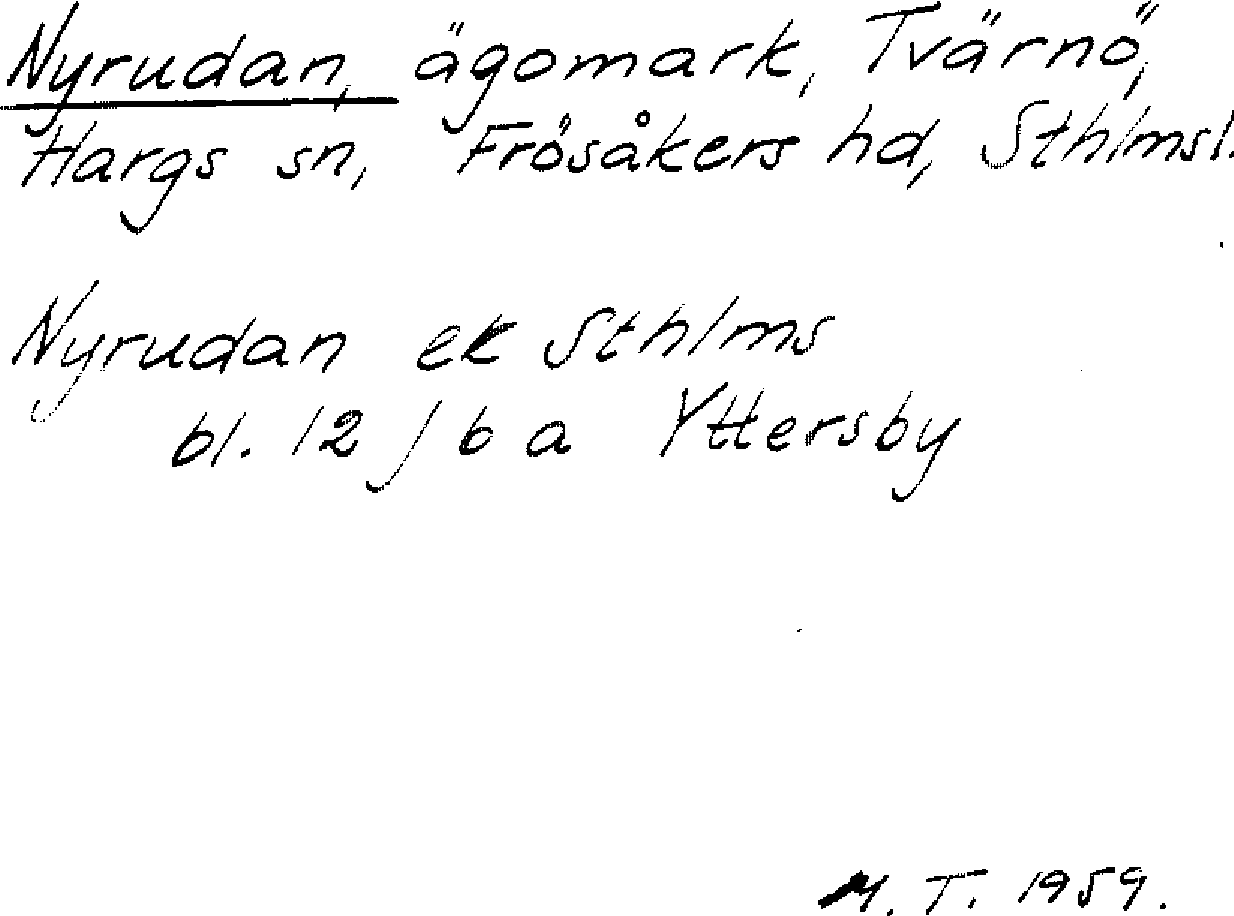 Nyrudan, ägomark, Tvärnö,
Hargs sn, Frösåkers hd, Sthlmsl.
Nyrudan ek Sthlms
bl. 12 J 6 a Yttersby
M. T. 1959.